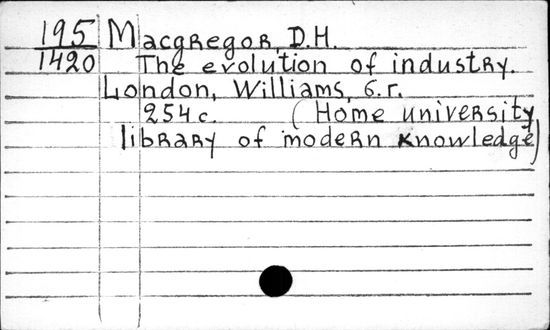 195 Macgregor, D.H.
1420 The evolution of industry.
London, Williams, б.г.
254 с. (Home university
library of modern knowledge)